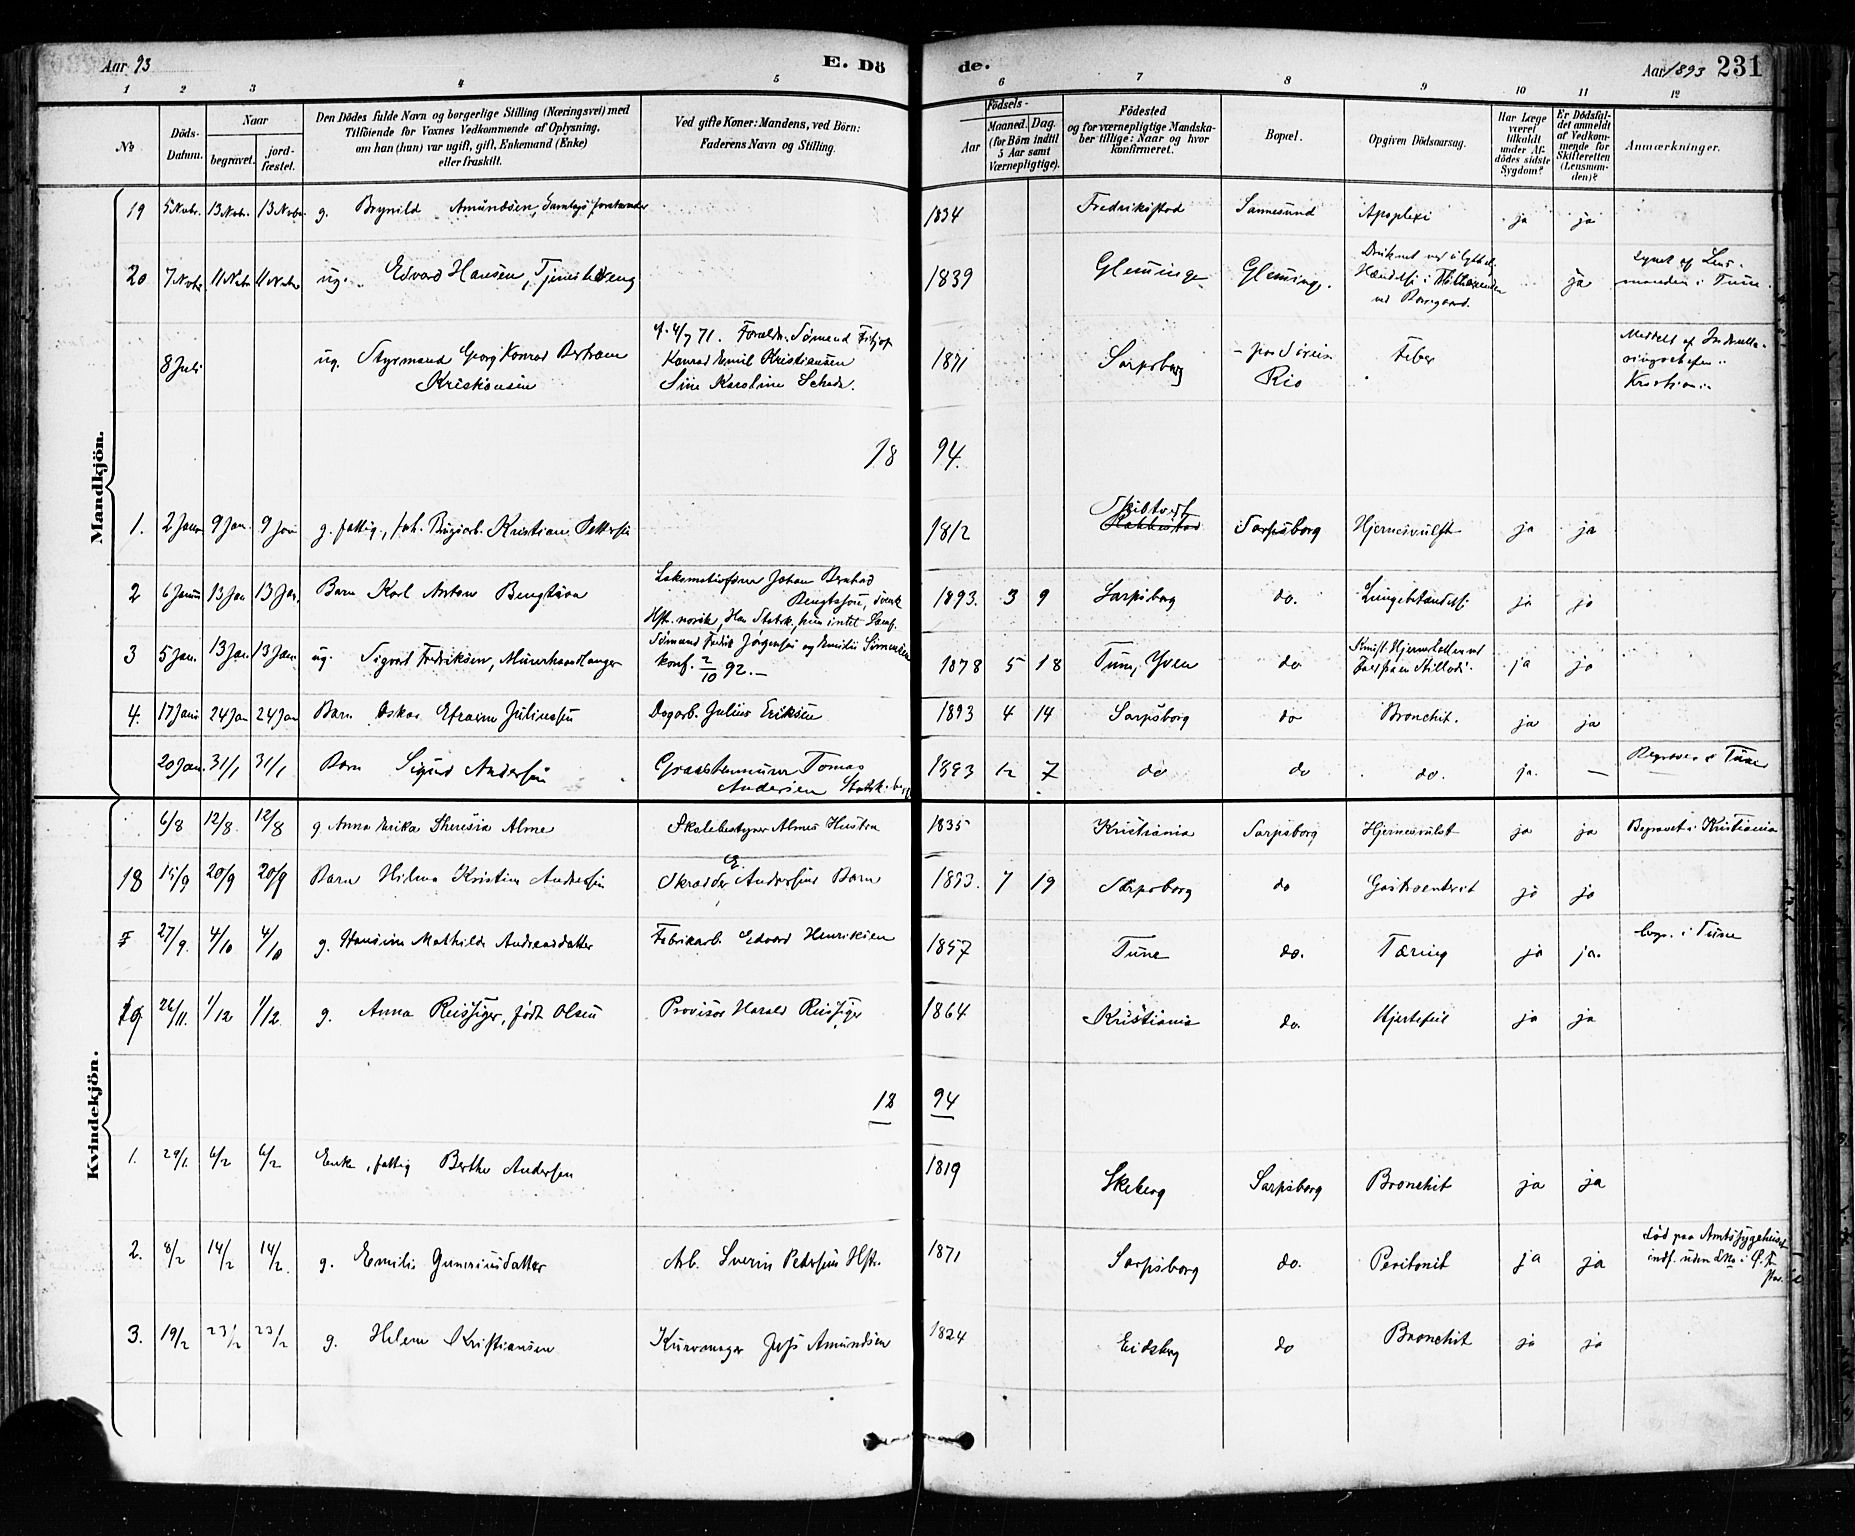 Aar 93
E. Dö
de.
Aar 1893 231
1 2 3 4 5 6 7 8 9 10 11 12
No
Döds-Datum.
Naar
begravet.
jordfæstet.
Den Dödes fulde Navn og borgerlige Stilling (Næringsvei) med
Tilföiende for Voxnes Vedkommende af Oplysning,
om han (hun) var ugift, gift, Enkemand (Enke)
eller fraskilt.
Ved gifte Koner: Mandens, ved Börn:
Faderens Navn og Stilling.
Födsels-
Aar
Maaned. Dag.
(for Börn indtil 5 Aar samt Værnepligtige).
Födested
og for værnepligtige Mandskaber tillige: Naar og hvor konfirmeret.
Bopæl.
Opgiven Dödsaarsag.
Har Læge været tilkaldt under Afdödes sidste Sygdom?
Er Dödsfaldet anmeldt af Vedkommende for Skifteretten (Lensmanden)?
Anmærkninger.
Mandkjön.
19 5 Novbr. 13 Novbr. 13 Novbr. g. Brynild Amundsen, 1834 Fredrikstad Sannesund Apoplexi ja ja
20 7 Novbr 11 Novbr 11 Novbr ug. Edvard Hansen, 1839 Glemminge Glemminge. Druknet ved ulykkel. Hændelse i ved ja af Lensmanden i Tune.
8 Juli ug. Styrmand Georg Konrad Bertram Kristiansen f. 4/7 71. Forældre: Sømand Konrad Emil Kristiansen Sine Karoline 1871 Sarpsborg Rio Feber Meddelt af
18 94.
1. 2 Janr 9 Jan. 9 Jan g. fattig, Kristian Pettersen 1812 Skibtvedt Sarpsborg Hjernesvulst ja ja
2 6 Januar 13 Jan 13 Jan. Barn Karl Anton Bengtson Lokomotivfører Johan Bernhad Bengtsson, svensk 1893. 3 9 Sarpsborg do. Lungebetændelse ja ja
3 5 Jan. 13 Jan 13 Jan. ug. Sigvart Fredriksen, Murerhaandlanger Sømand Fredrik Jørgensen og Emilie konf. 2/10 92. 1878 5 18 Tune, Yven do ja ja
4. 17 Janr 24 Jan 24 Jan Barn Oskar Efraim Juliussen Dagarb. Julius Eriksen 1893 4 14 Sarpsborg do Bronchit. ja ja
20 Jan. 31/1 31/1 Barn Sigurd Andersen Graastensmurer Tomas Andersen 1893 12 7 do do do. ja. — Begraven i Tune
Kvindekjön.
6/8 12/8. 12/8 g Anna Erika Theresia Alme Skolebestyrer Almes Hustru 1835 Kristiania Sarpsborg Hjernesvulst ja ja Begravet i Kristiania
18 15/9 20/9 20/9 Barn Hilma Kristine Andersen Skrædder E. Andersens Barn 1893. 7 19 Sarpsborg do Gastroenterit ja ja
27/9. 4/10 4/10 g. Hansine Mathilde Andreasdatter Fabrikarb. Edvard Henriksen 1857 Tune do. Tæring ja ja. begr. i Tune
19 26/11. 1/12 1/12 g. Anna Reissiger, født Olsen Provisor Harald Reissiger 1864 Kristiania do. Hjertefeil ja ja
18 94
1. 29/1. 6/2 6/2 Enke, fattig Berthe Andersen 1819 Skeberg Sarpsborg Bronchit ja ja
2. 8/2 14/2 14/2. g. Emilie Guneriusdatter Arb. Sverin Petersens Hstr. 1871 Sarpsborg do. Peritonit ja ja død paa Amtssygehuset
3. 19/2 23/2 23/2 g. Helene Kristiansen Kurvmager Jens Amundsen 1824 Eidsberg do Bronchit ja ja